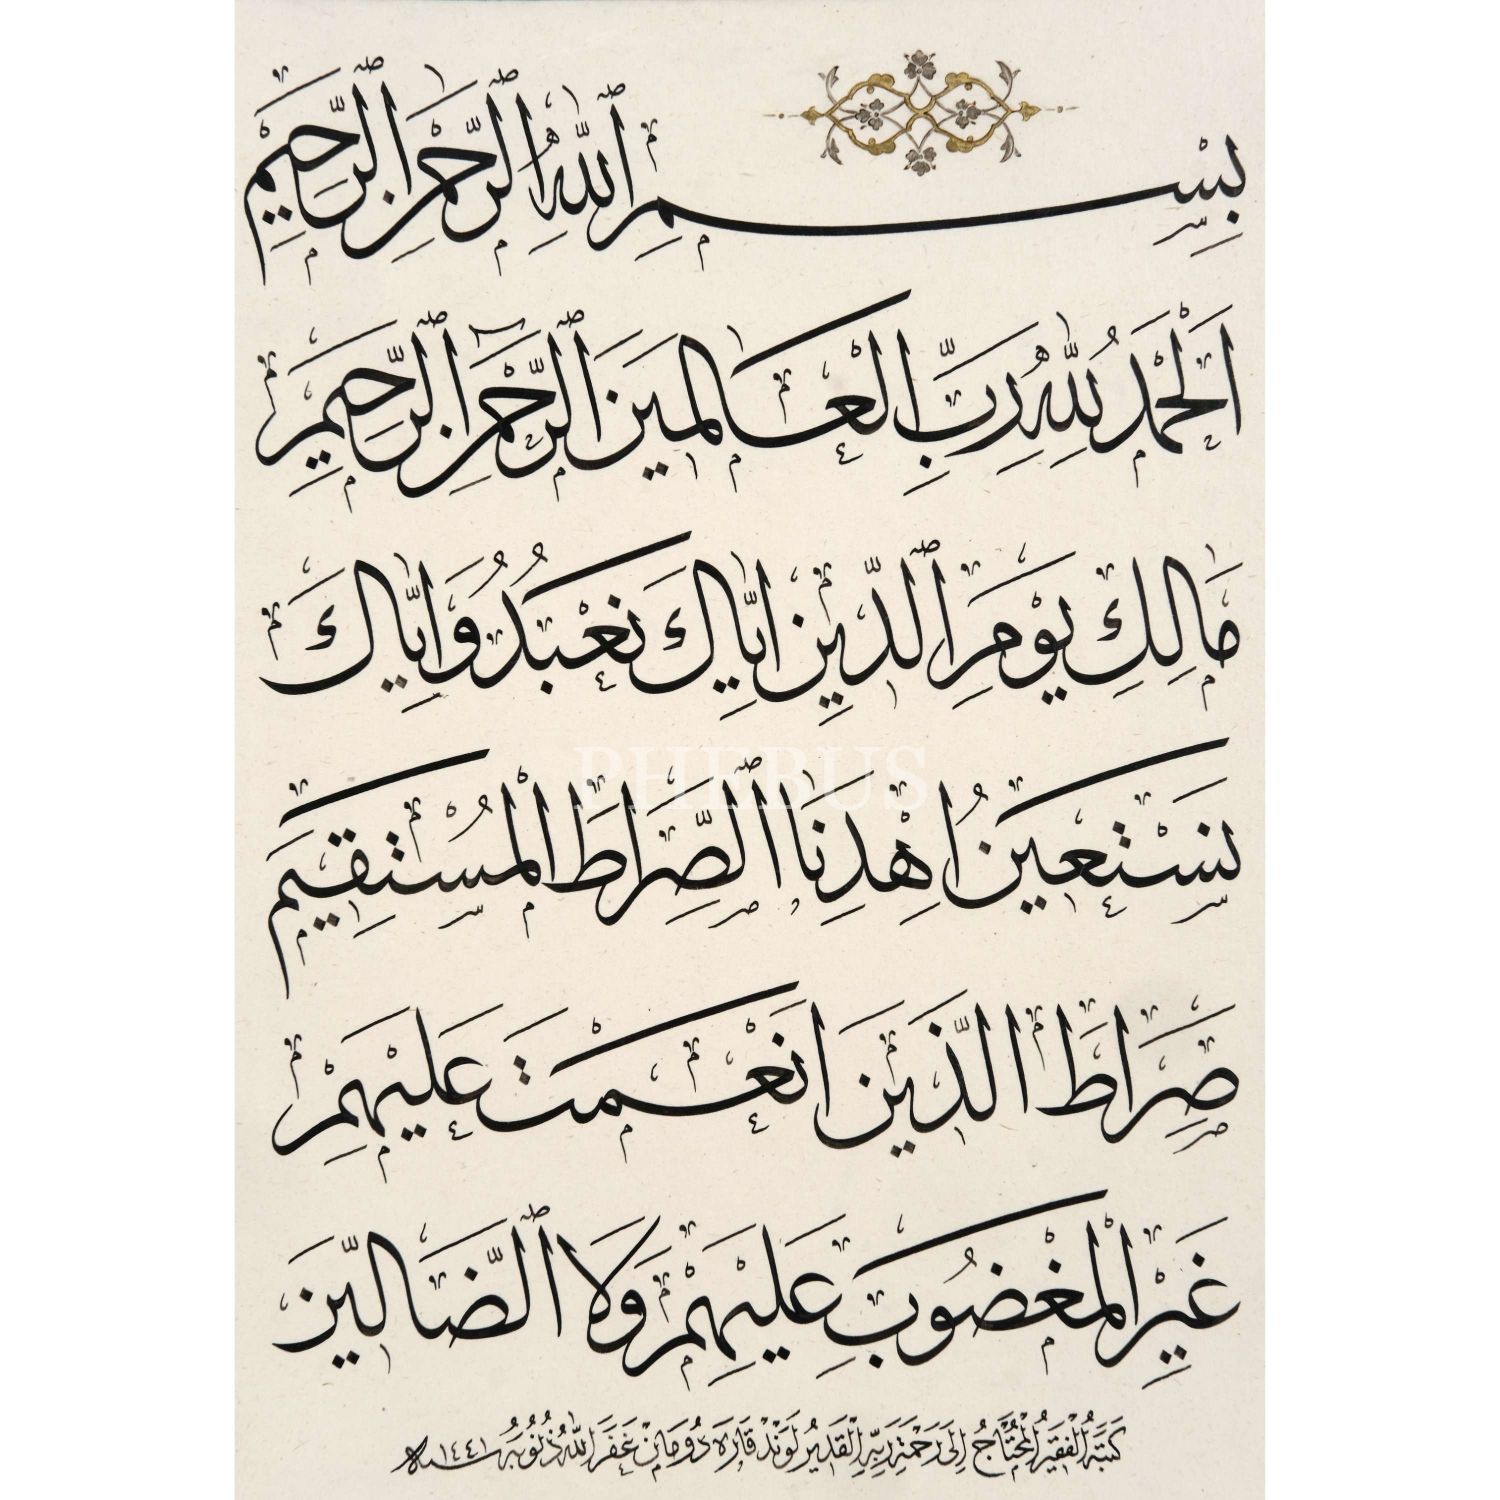 بِسْمِ ٱللّٰهِ ٱلرَّحْمٰنِ ٱلرَّحِيمِ
اَلْحَمْدُ لِلّٰهِ رَبِّ الْعَالَمِينَ ٱلرَّحْمٰنِ ٱلرَّحِيمِ
مَالِكِ يَوْمِ ٱلدِّينِ اِيَّاكَ نَعْبُدُ وَاِيَّاكَ
PHEBUS
نَسْتَعِينُ اِهْدِنَا ٱلصِّرَاطَ الْمُسْتَقِيمَ
صِرَاطَ الَّذِينَ اَنْعَمْتَ عَلَيْهِمْ
غَيْرِ الْمَغْضُوبِ عَلَيْهِمْ وَلَا ٱلضَّالِّينَ
كَتَبَهُ الْفَقِيرُ الْمُحْتَاجُ اِلَى رَحْمَةِ رَبِّهِ الْقَدِيرِ لَوَنْدْ قَارَه دُومَانْ غَفَرَ اللّٰهُ ذُنُوبَهُ سنه ١٤٤١